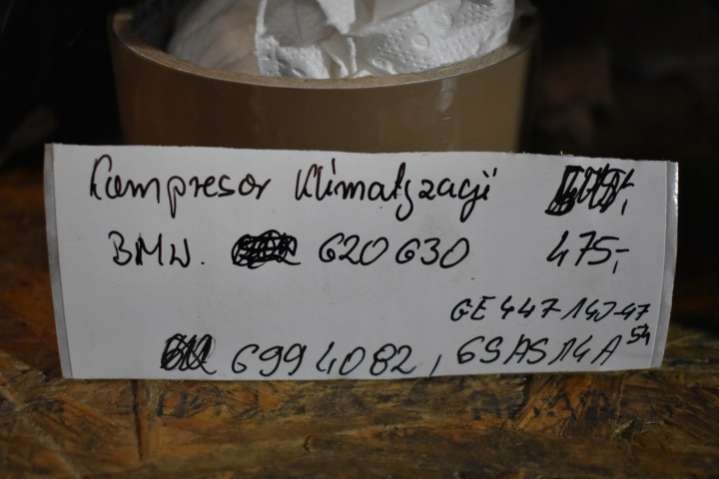 Kompresor Klimatyzacji
BMW. G20 G30 475,-
GE447-140-47
6994082, 6SAS14A 54